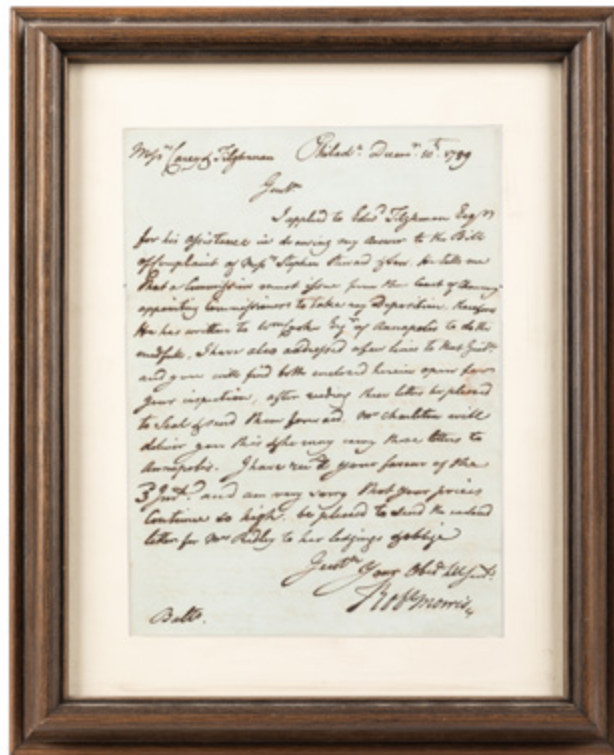 Messrs Carey & Tilghman Philada. Decemr. 10th. 1789
Gentn
I applied to Edwd. Tilghman Esqr
for his assistance in drawing my answer to the Bill
of Complaint of Messrs Stephen Steward & Son. He tells me
that a Commission must issue from the Court of Chancery
appointing Commissioners to take my Deposition, therefore
He has written to Wm Cooke Esqr. of Annapolis to do the
needfull. I have also addressed a few lines to that Gentn.
and you will find both enclosed herein open for
your inspection, after reading these letters be pleased
to Seal & send them forward. Mr Charlton will
deliver you this & he may carry those letters to
Annapolis. I have recd. your favour of the
3 Inst. and am very sorry that your prices
Continue so high. be pleased to send the enclosed
letter for Mrs Ridley to her lodgings & oblige
Gentn Your Obedt. hble Servt.
Robt Morris
Balto.